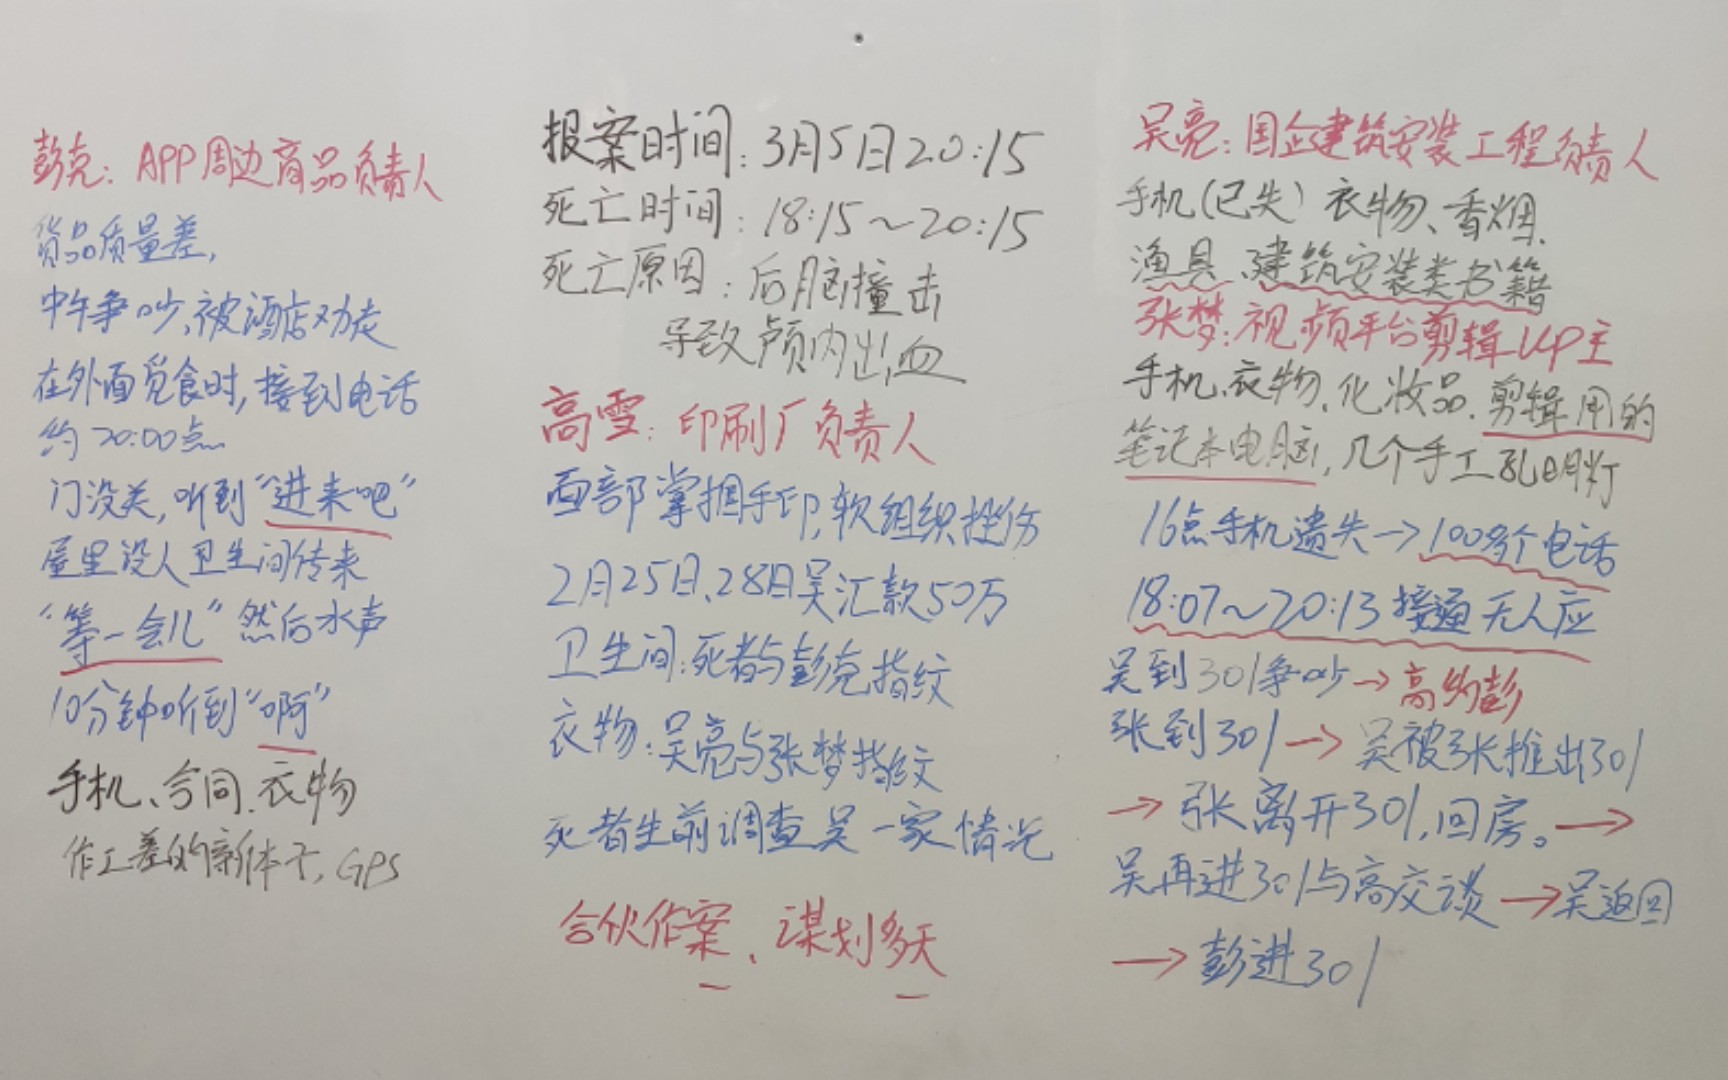 彭克：APP周边商品负责人
货品质量差，
中午争吵、被酒店劝走
在外面觅食时，接到电话
约20:00点
门没关，听到“进来吧”
屋里没人卫生间传来
“等一会儿”然后水声
10分钟听到“啊”
手机、合同、衣物
作工差的新体子，GPS
报案时间：3月5日20:15
死亡时间：18:15～20:15
死亡原因：后脑撞击
导致颅内出血
高雪：印刷厂负责人
面部掌掴手印，软组织挫伤
2月25日、28日吴汇款50万
卫生间：死者与彭克指纹
衣物：吴亮与张梦指纹
死者生前调查吴一家情况
合伙作案、谋划多天
吴亮：国企建筑安装工程负责人
手机（已失）衣物、香烟、
渔具、建筑安装类书籍
张梦：视频平台剪辑UP主
手机、衣物、化妆品、剪辑用的
笔记本电脑，几个手工孔明灯
16点手机遗失→100多个电话
18:07～20:13接通无人应
吴到301争吵→高约彭
张到301→吴被张推出301
→张离开301，回房。→
吴再进301与高交谈→吴返回
→彭进301